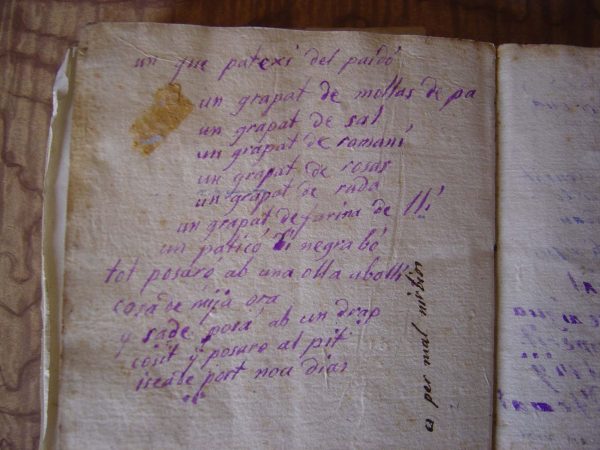 un que patexi del paidó
un grapat de mollas de pa
un grapat de sal
un grapat de romaní
un grapat de rosas
un grapat de ruda
un grapat de farina de llí
un paticó di negra bó
tot posaro ab una olla ubollí
cosa de mija ora
y sade posá ab un drap
cosit y posaro al pit
port nou dias
es per mal